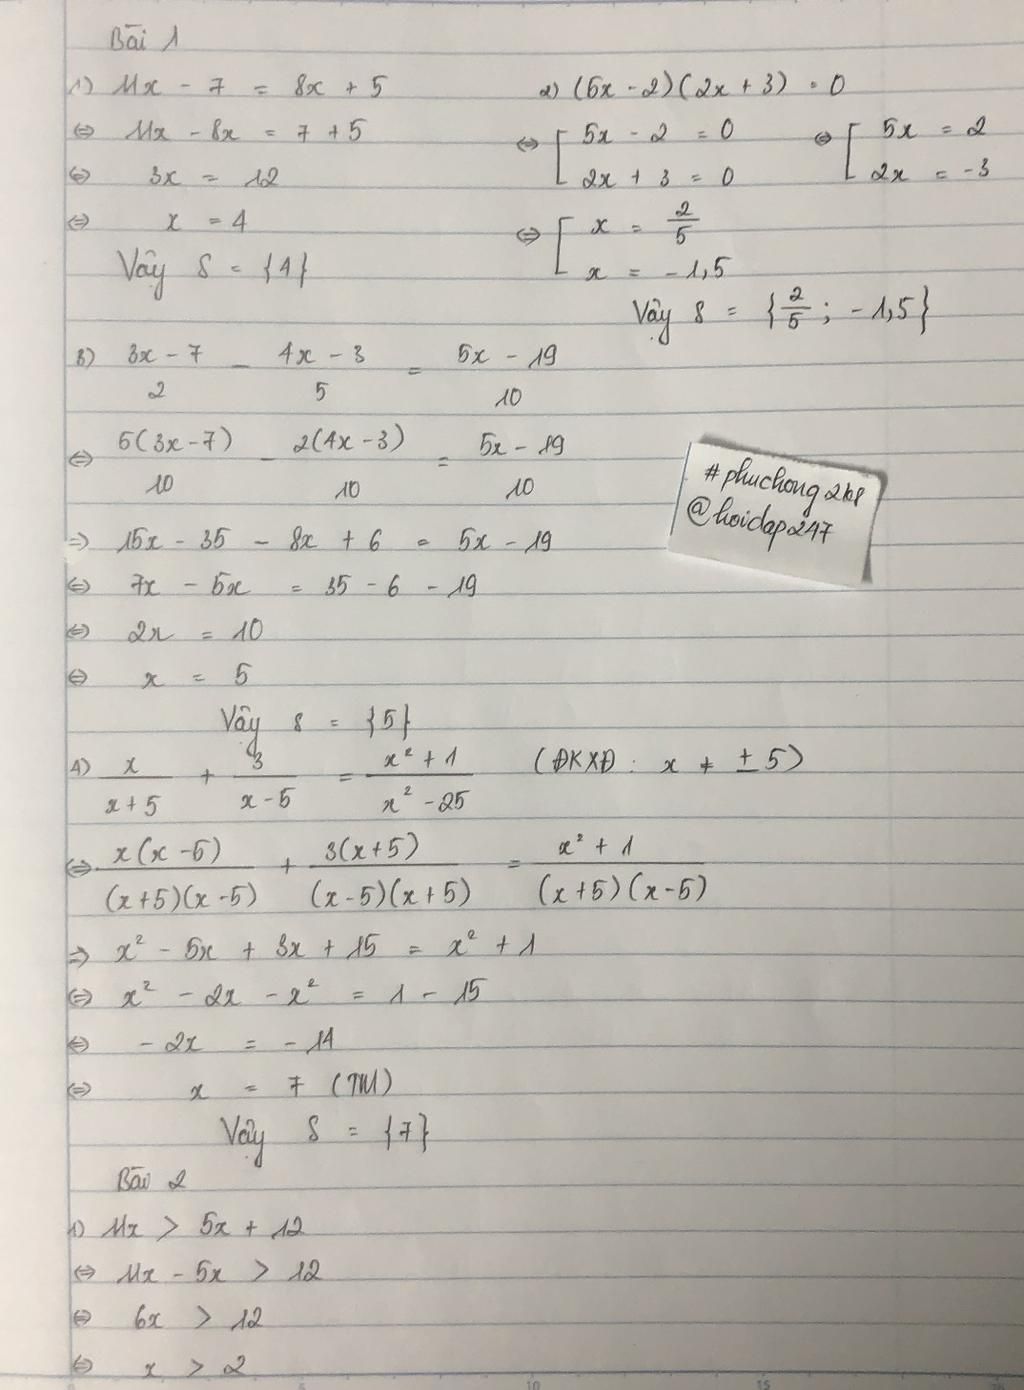 Bài 1
1) 11x - 7 = 8x + 5
⇔ 11x - 8x = 7 + 5
⇔ 3x = 12
⇔ x = 4
Vậy S = {4}
2) (5x - 2)(2x + 3) = 0
⇔ [ 5x - 2 = 0 ⇔ [ 5x = 2
2x + 3 = 0 2x = -3
⇔ [ x = 2/5
x = -1,5
Vậy S = {2/5 ; -1,5}
3) (3x - 7)/2 - (4x - 3)/5 = (5x - 19)/10
⇔ 5(3x - 7)/10 - 2(4x - 3)/10 = (5x - 19)/10
⇒ 15x - 35 - 8x + 6 = 5x - 19
⇔ 7x - 5x = 35 - 6 - 19
⇔ 2x = 10
⇔ x = 5
Vậy S = {5}
#phuchong2k8
@hoidap247
4) x/(x + 5) + 3/(x - 5) = (x² + 1)/(x² - 25) (ĐKXĐ: x ≠ ± 5)
⇔ x(x - 5)/(x + 5)(x - 5) + 3(x + 5)/(x - 5)(x + 5) = (x² + 1)/(x + 5)(x - 5)
⇒ x² - 5x + 3x + 15 = x² + 1
⇔ x² - 2x - x² = 1 - 15
⇔ - 2x = - 14
⇔ x = 7 (TM)
Vậy S = {7}
Bài 2
1) 11x > 5x + 12
⇔ 11x - 5x > 12
⇔ 6x > 12
⇔ x > 2